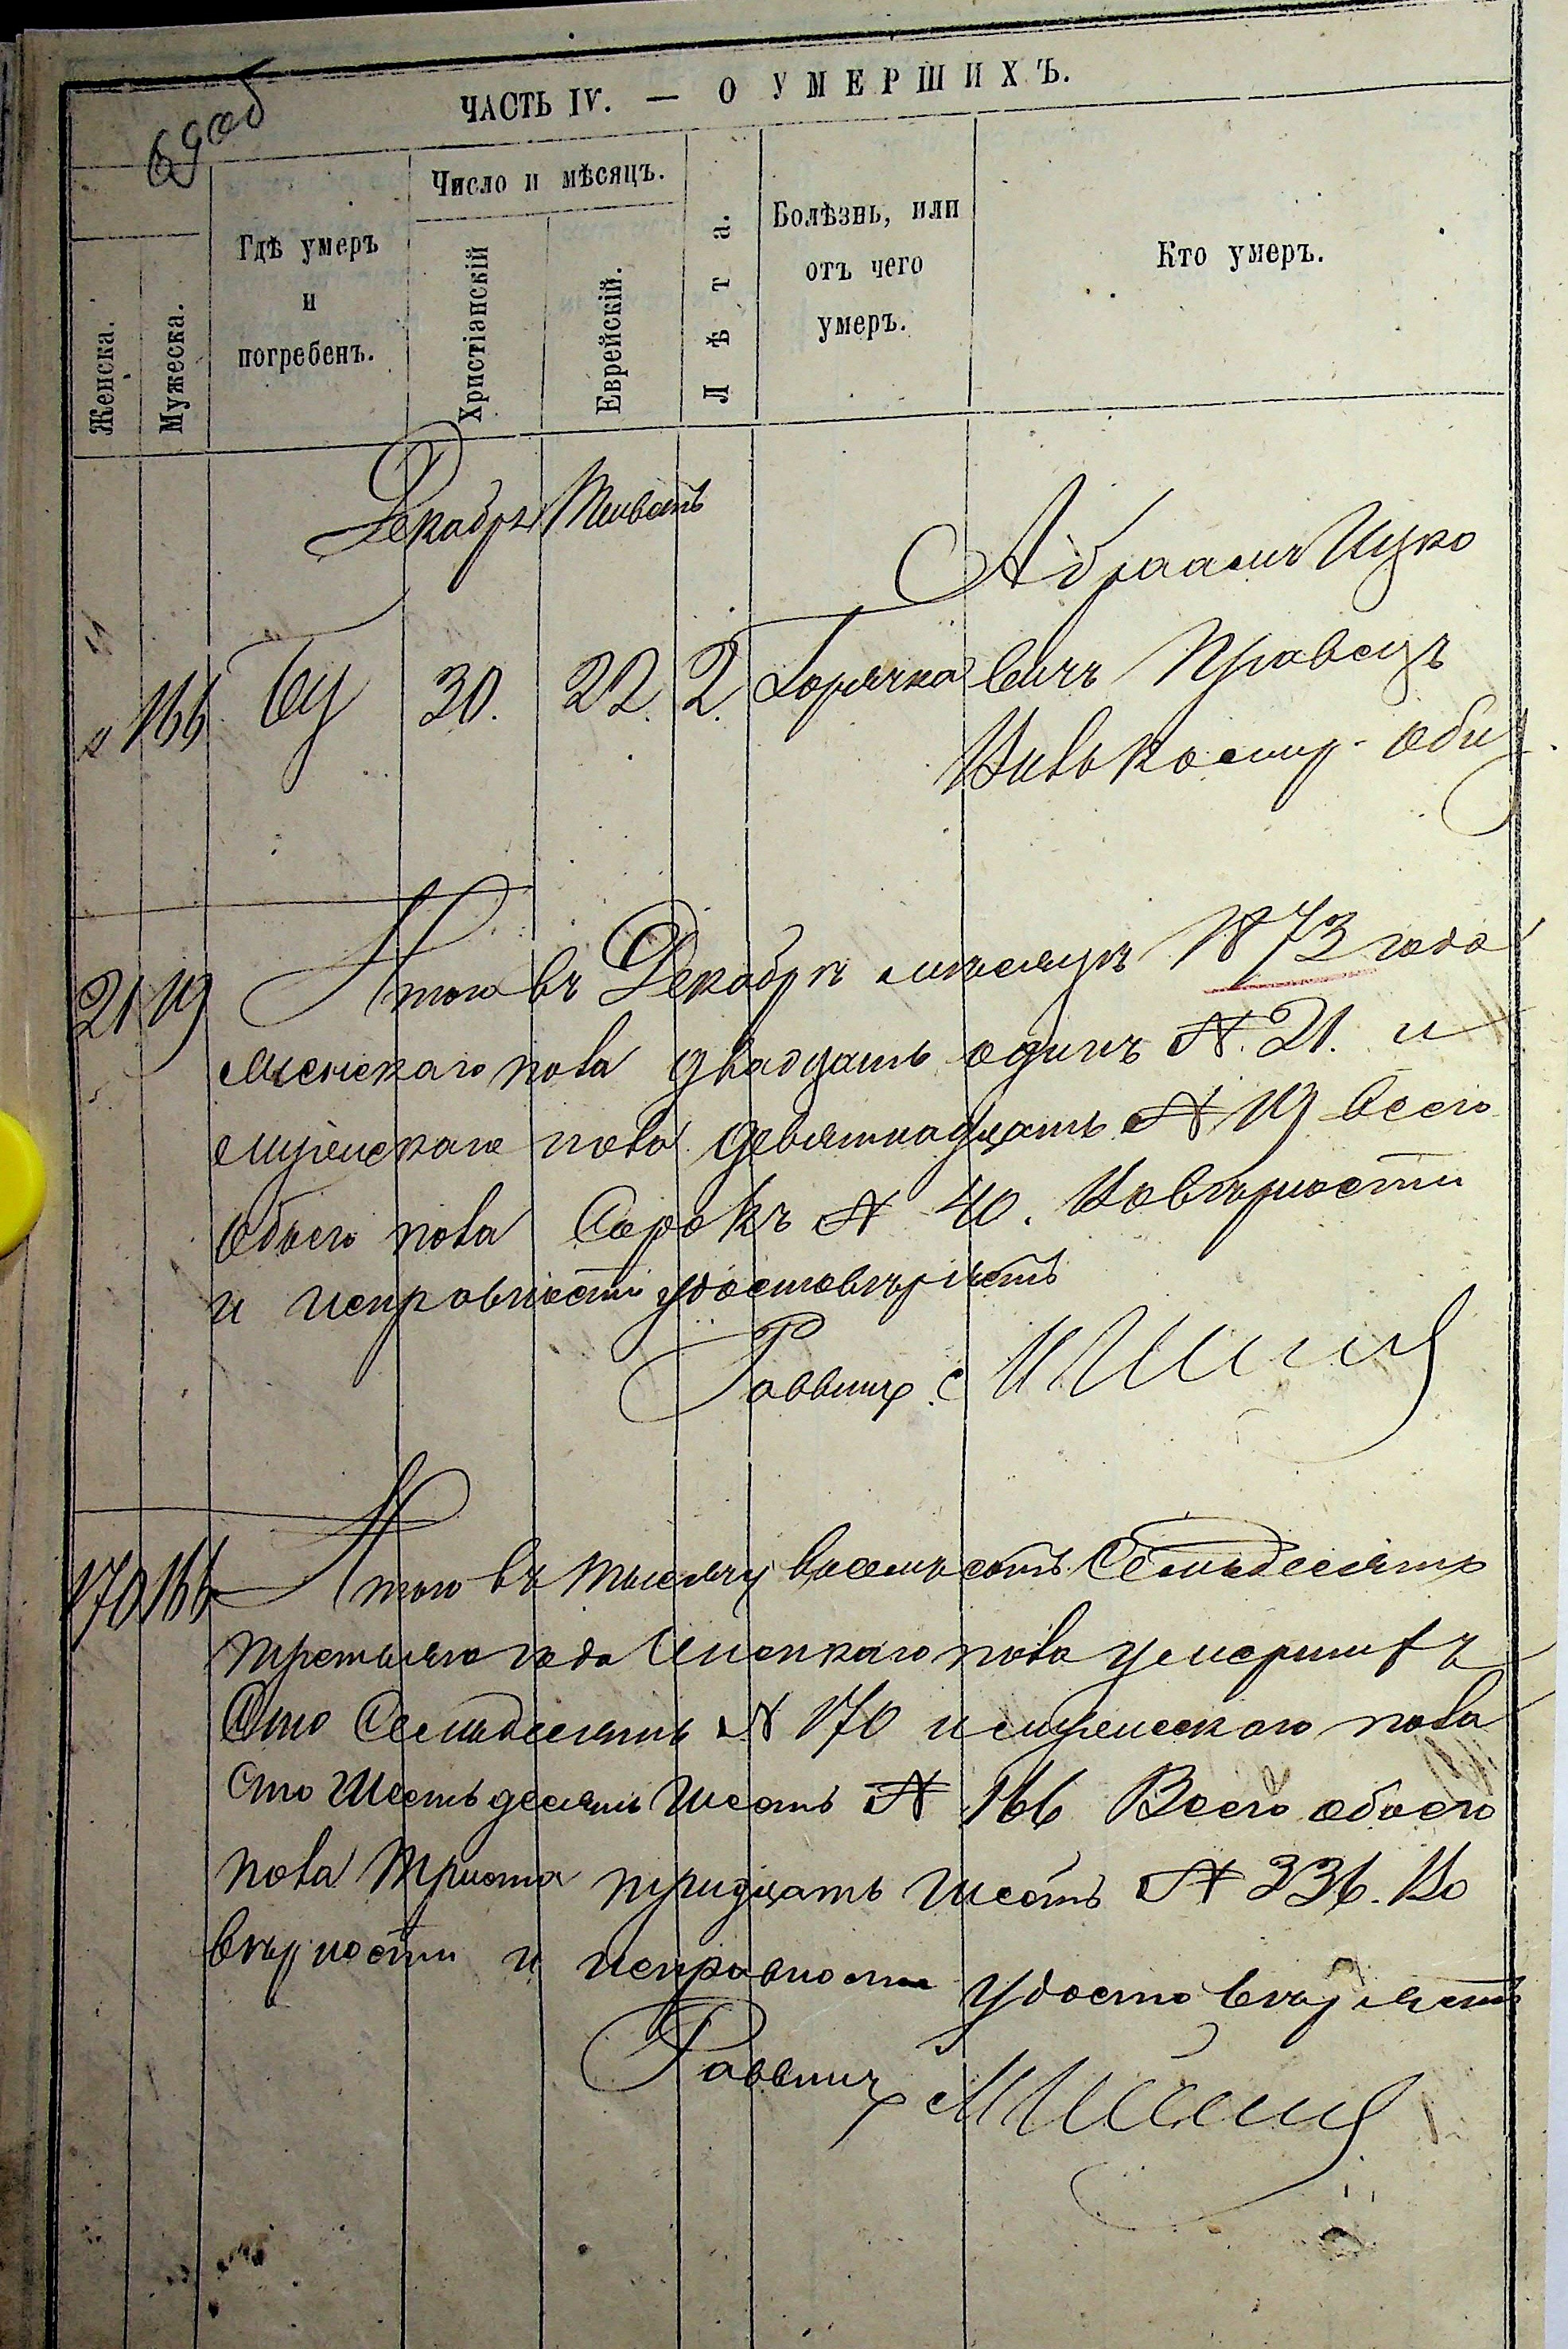 69об
ЧАСТЬ IV. — О УМЕРШИХЪ.
Женска.
Мужеска.
Гдѣ умеръ
и
погребенъ.
Число и мѣсяцъ.
Христіанскій
Еврейскій.
Лѣта.
Болѣзнь, или
отъ чего
умеръ.
Кто умеръ.
Декабрь Тивать
Абраамъ Ицко
166 30. 22. 2. Горячка вичъ Правецъ
Вилькомир. общ.
21 19 Итого въ Декабрѣ мѣсяцѣ 1873 года
женскаго пола двадцать одинъ № 21. и
мужескаго пола девятнадцать № 19 всего
обоего пола Сорокъ № 40. Вовѣрности
и исправности удостовѣряетъ
Раввинъ
170 166 Итого въ тысячу восемьсотъ Семьдесятъ
третьяго года Женскаго пола умершихъ
Сто Семьдесятъ № 170 и мужескаго пола
Сто Шестьдесятъ Шесть № 166 Всего обоего
пола Триста тридцать шесть № 336. Во
вѣрности и исправности удостовѣряетъ
Раввинъ